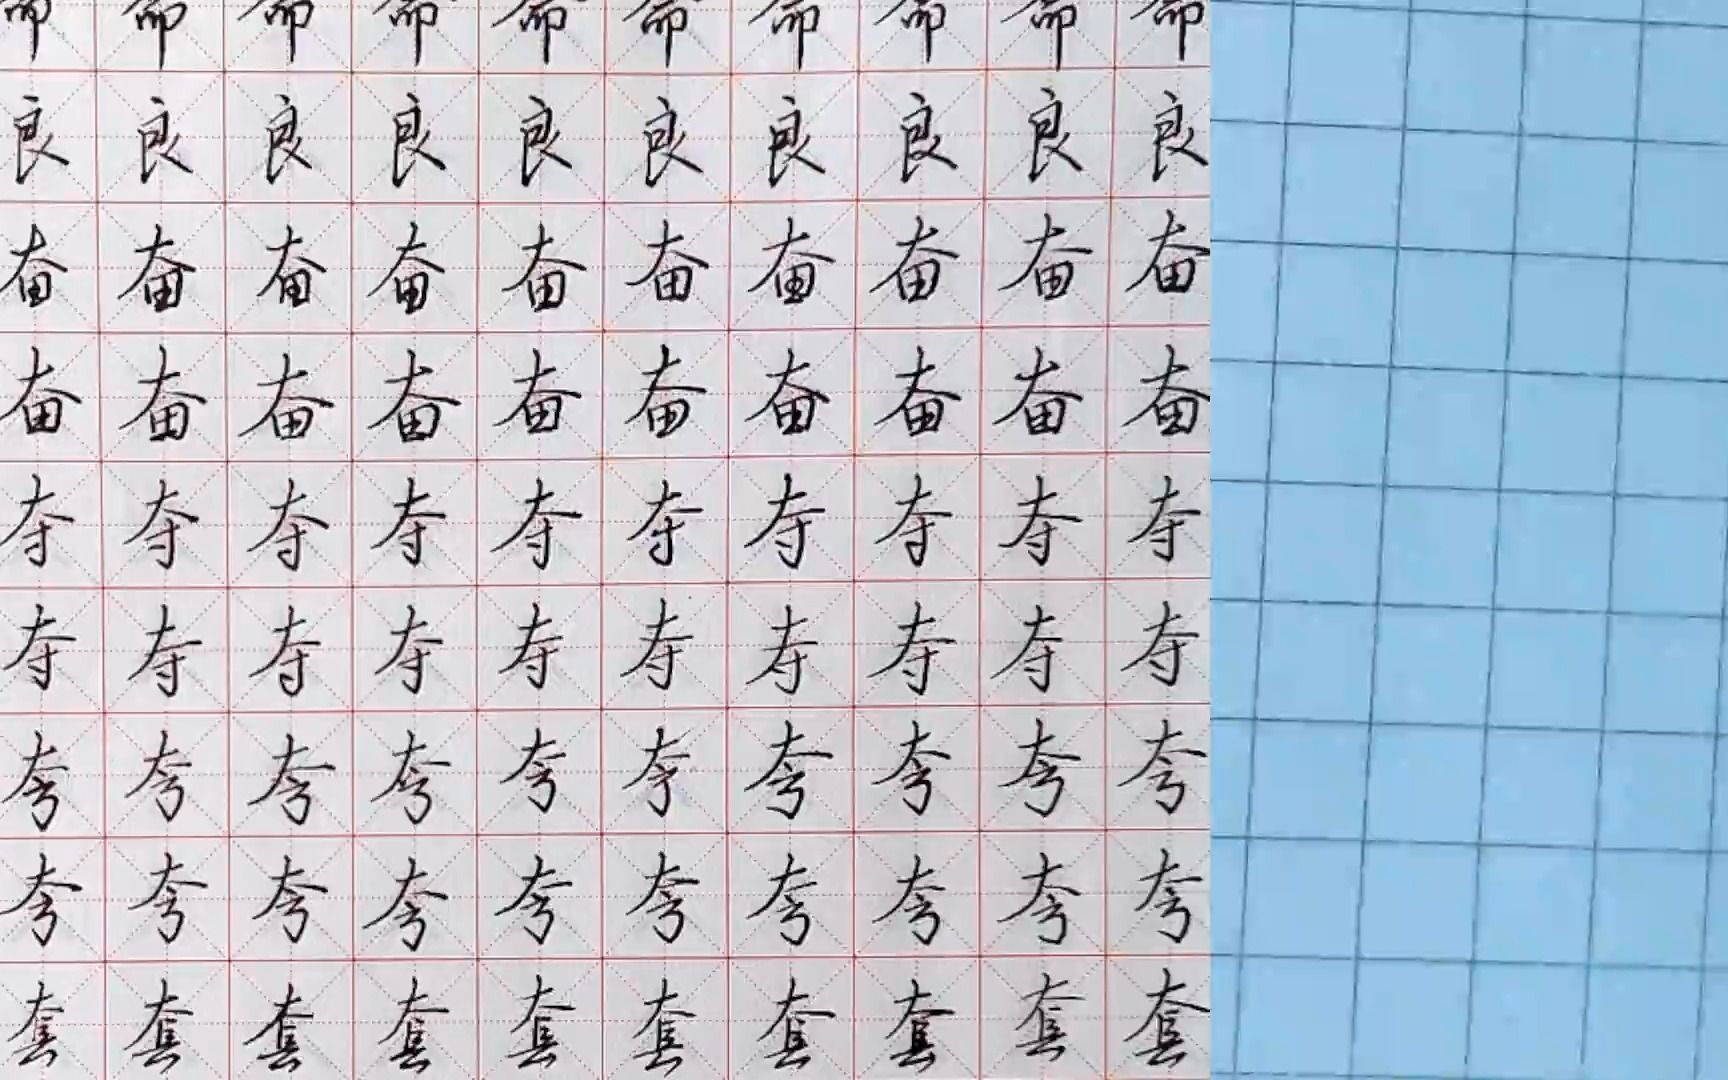 良良良良良良良良良良
奋奋奋奋奋奋奋奋奋奋
奋奋奋奋奋奋奋奋奋奋
夺夺夺夺夺夺夺夺夺夺
夺夺夺夺夺夺夺夺夺夺
夸夸夸夸夸夸夸夸夸夸
夸夸夸夸夸夸夸夸夸夸
套套套套套套套套套套